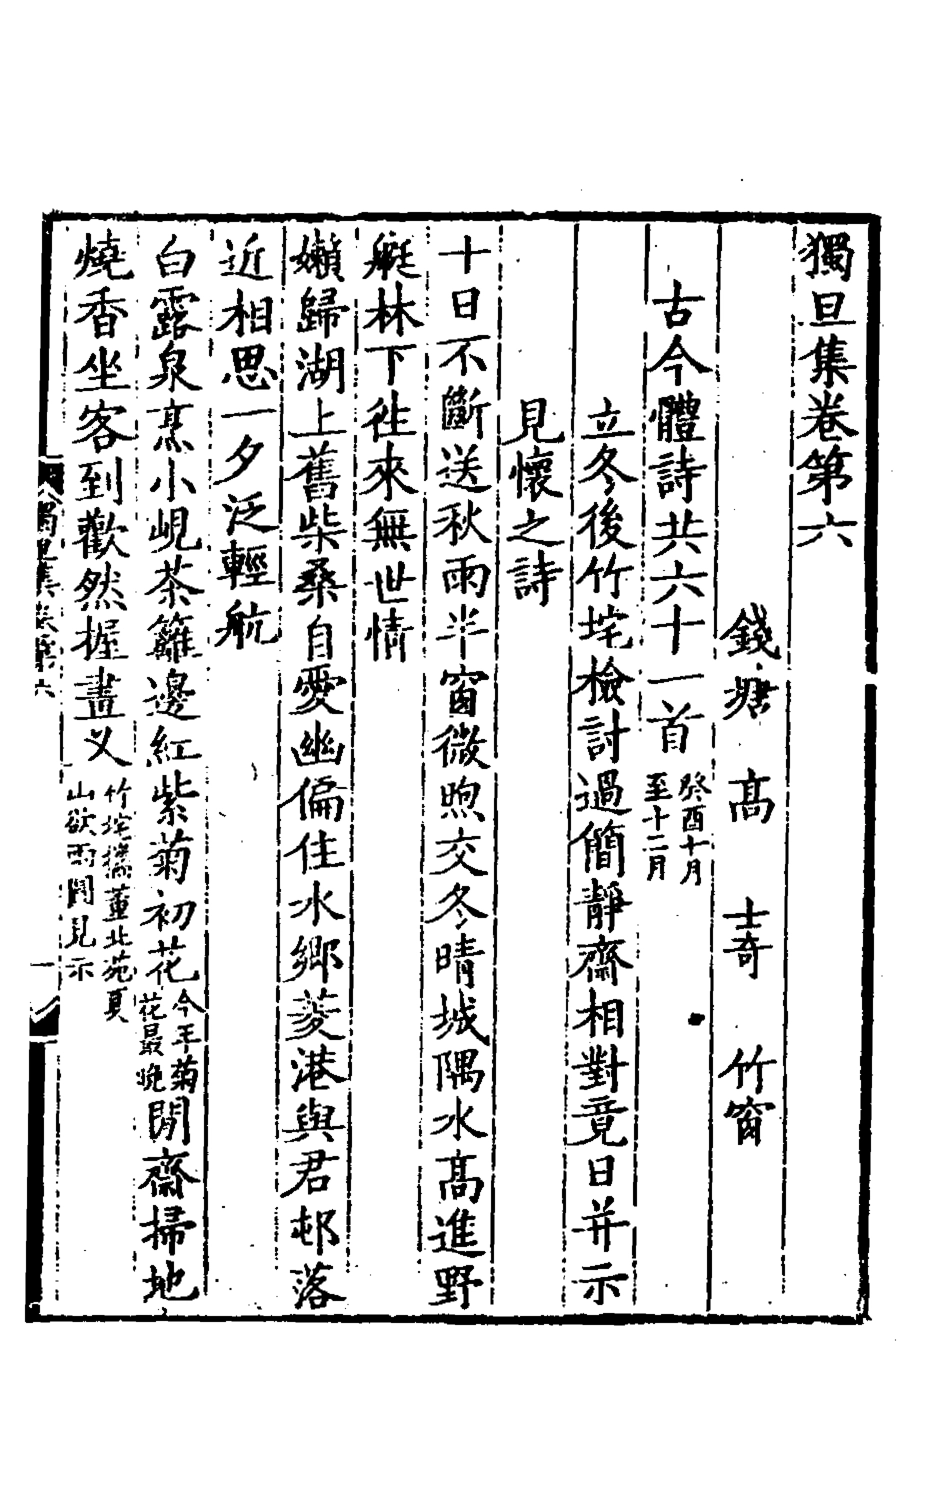 獨旦集卷第六
錢塘 高 士奇 竹窗
古今體詩共六十一首 癸酉十月
至十二月
立冬後竹垞檢討過簡靜齋相對竟日并示
見懷之詩
十日不斷送秋雨半窗微煦交冬晴城隅水高進野
艇林下往來無世情
嬾歸湖上舊柴桑自愛幽偏住水鄉菱港與君邨落
近相思一夕泛輕航
白露泉烹小峴茶籬邊紅紫菊初花 今年菊
花最晚 閒齋掃地
燒香坐客到歡然握畫叉 竹垞攜董北苑夏
山欲雨圖見示
獨旦集卷第六 一